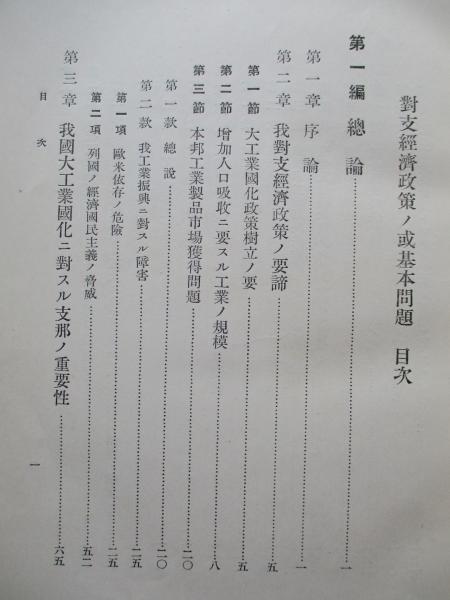 對支經濟政策ノ或基本問題 目次
第一編 總論……一
第一章 序論……一
第二章 我對支經濟政策ノ要諦……五
第一節 大工業國化政策樹立ノ要……五
第二節 增加人口吸收ニ要スル工業ノ規模……八
第三節 本邦工業製品市場獲得問題……二〇
第一款 總說……二〇
第二款 我工業振興ニ對スル障害……二五
第一項 歐米依存ノ危險……二五
第二項 列國ノ經濟國民主義ノ脅威……五二
第三章 我國大工業國化ニ對スル支那ノ重要性……六五
目次
一